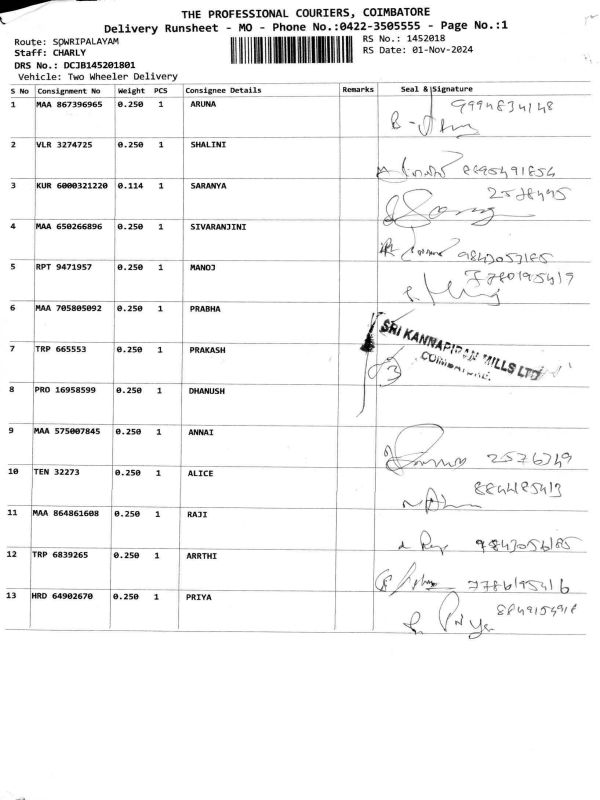 THE PROFESSIONAL COURIERS, COIMBATORE
Delivery Runsheet - MO - Phone No.:0422-3505555 - Page No.:1
Route: SOWRIPALAYAM
RS No.: 1452018
Staff: CHARLY
RS Date: 01-Nov-2024
DRS No.: DCJB145201801
Vehicle: Two Wheeler Delivery
S No Consignment No Weight PCS Consignee Details Remarks Seal & Signature
1 MAA 867396965 0.250 1 ARUNA 9994834148
2 VLR 3274725 0.250 1 SHALINI 8895491854
3 KUR 6000321220 0.114 1 SARANYA
4 MAA 650266896 0.250 1 SIVARANJINI
5 RPT 9471957 0.250 1 MANOJ
6 MAA 705805092 0.250 1 PRABHA
SRI KANNAPIRAN MILLS LTD
COIMBATORE.
7 TRP 665553 0.250 1 PRAKASH
8 PRO 16958599 0.250 1 DHANUSH
9 MAA 575007845 0.250 1 ANNAI
10 TEN 32273 0.250 1 ALICE
11 MAA 864861608 0.250 1 RAJI
12 TRP 6839265 0.250 1 ARRTHI
13 HRD 64902670 0.250 1 PRIYA Priya